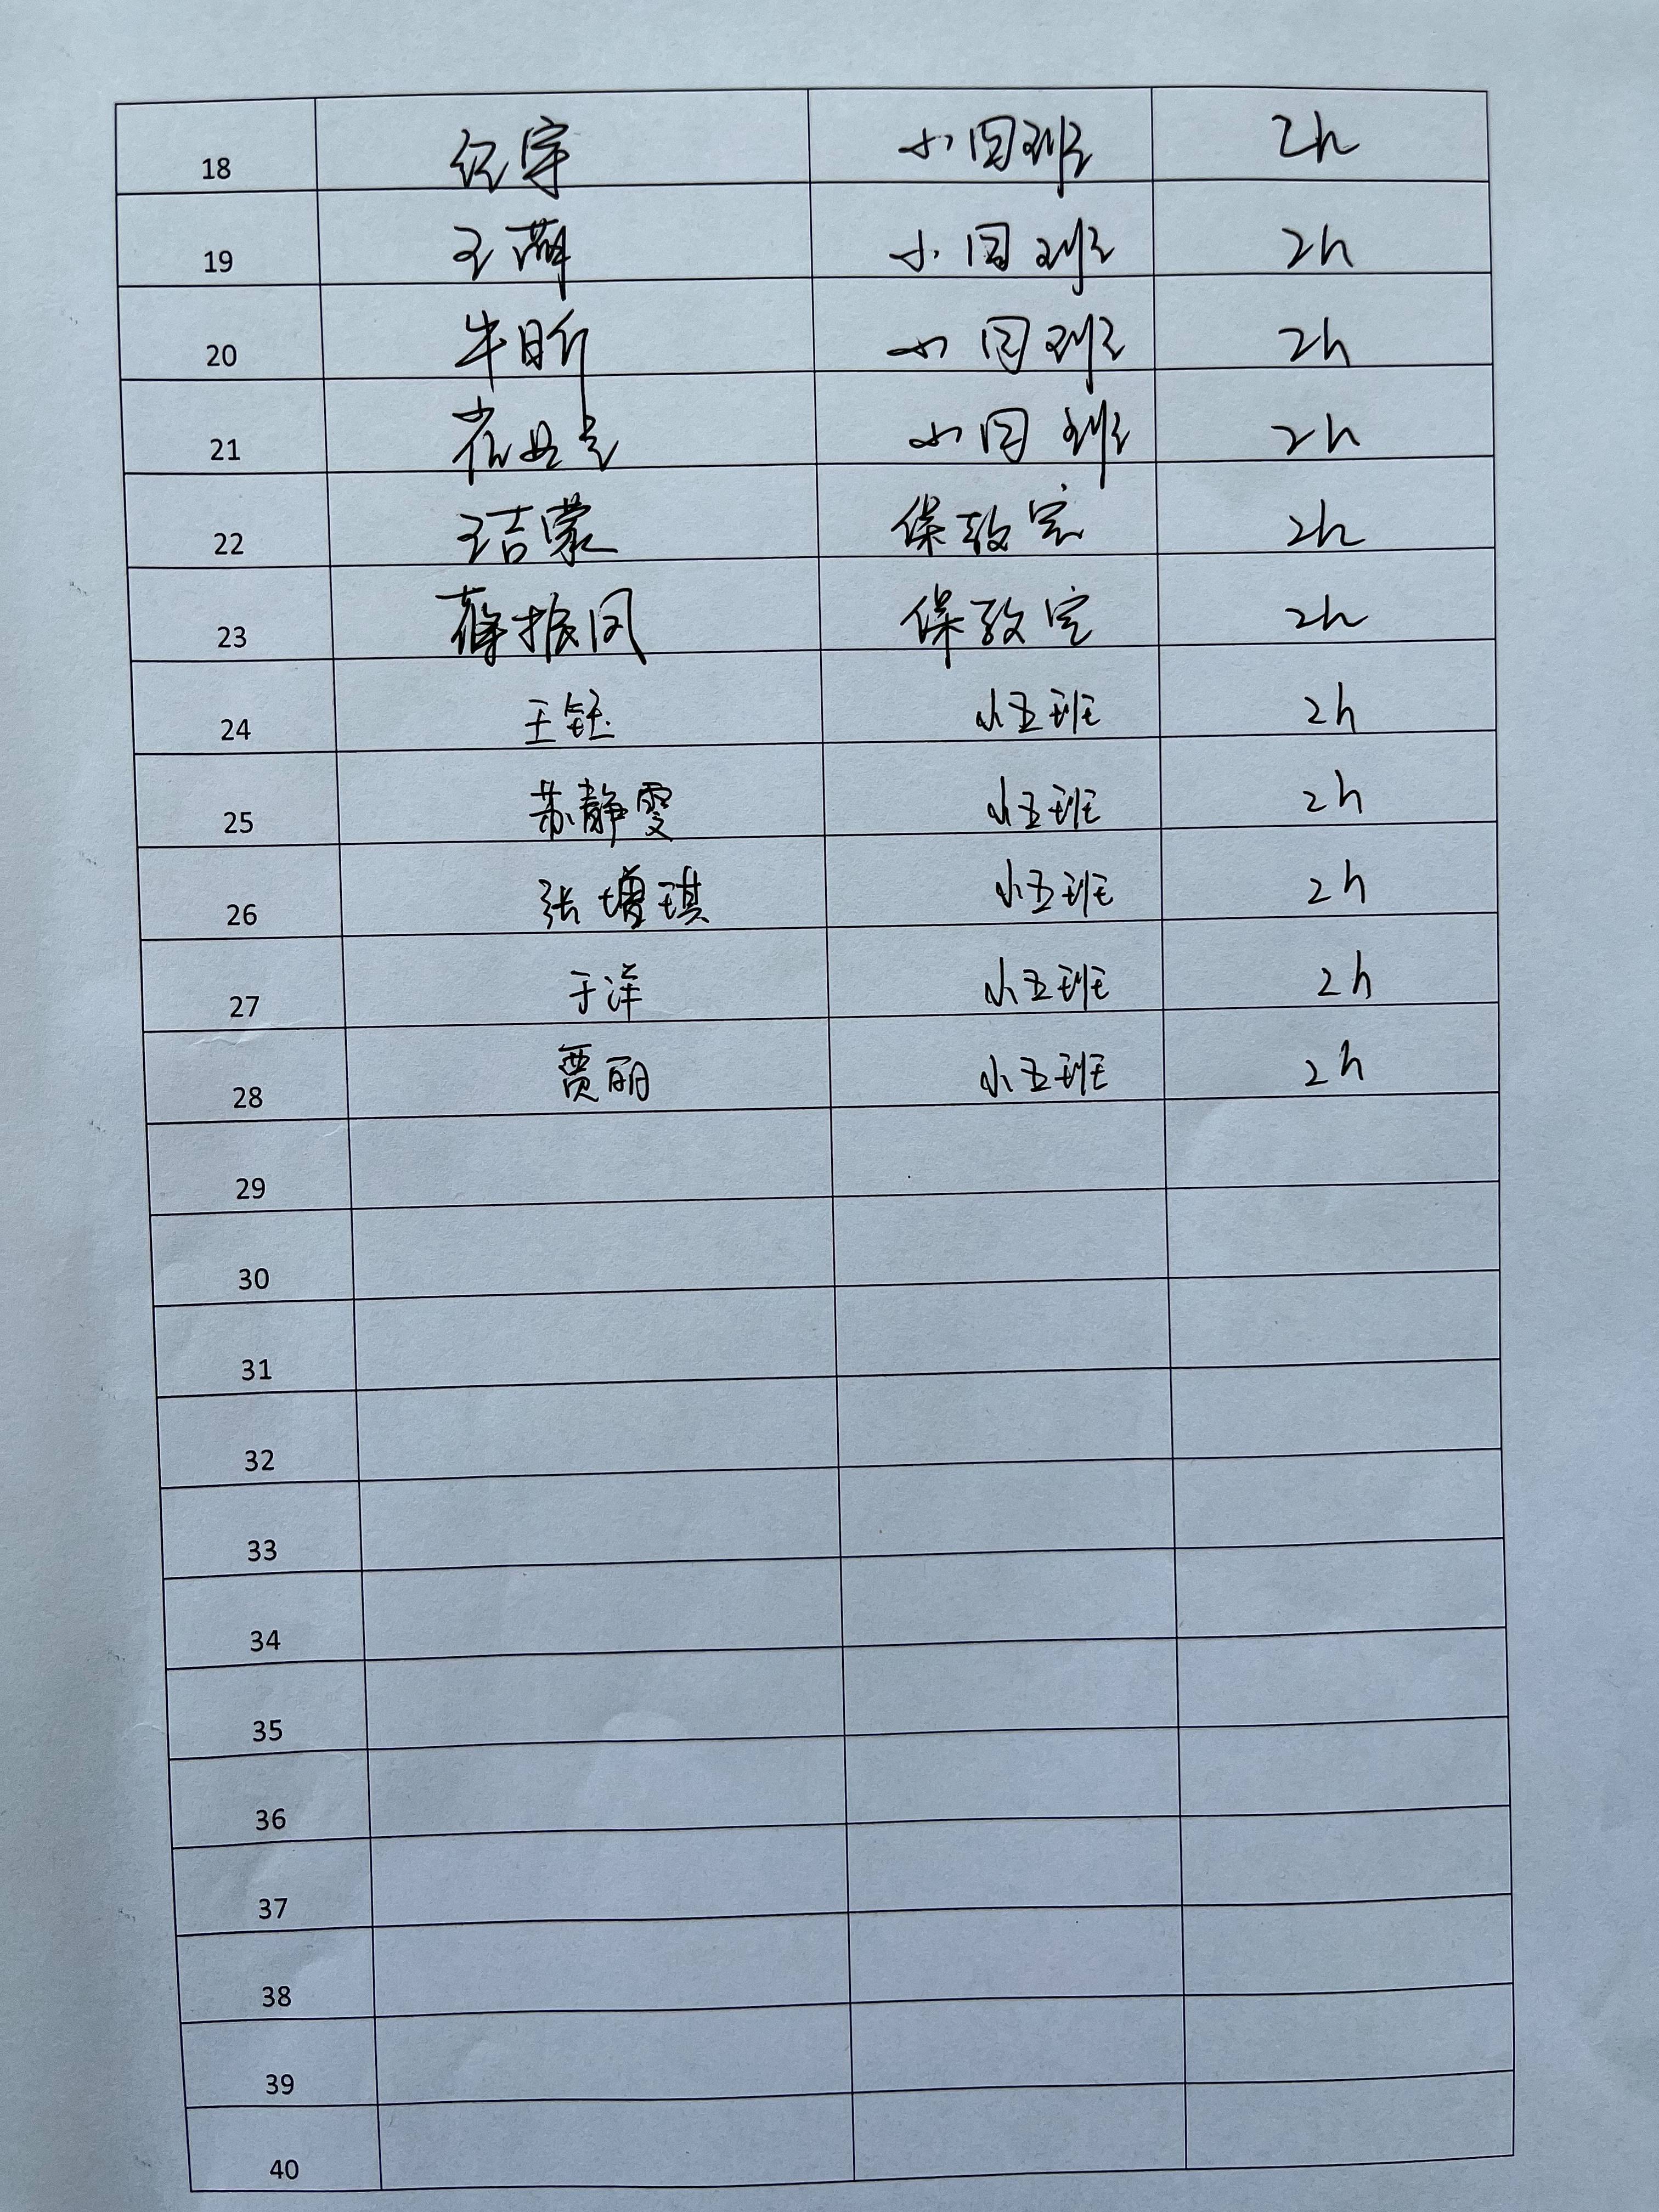 18 纪宇 小四班 2h
19 王萍 小四班 2h
20 牛昕 小四班 2h
21 小四班 2h
22 王吉蒙 保教室 2h
23 薛振凤 保教室 2h
24 王钰 小五班 2h
25 苏静雯 小五班 2h
26 张增琪 小五班 2h
27 于洋 小五班 2h
28 贾丽 小五班 2h
29
30
31
32
33
34
35
36
37
38
39
40